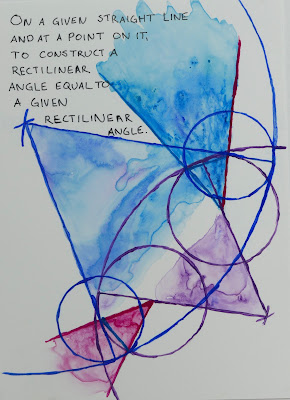 ON A GIVEN STRAIGHT LINE
AND AT A POINT ON IT,
TO CONSTRUCT A
RECTILINEAR
ANGLE EQUAL TO
A GIVEN
RECTILINEAR
ANGLE.